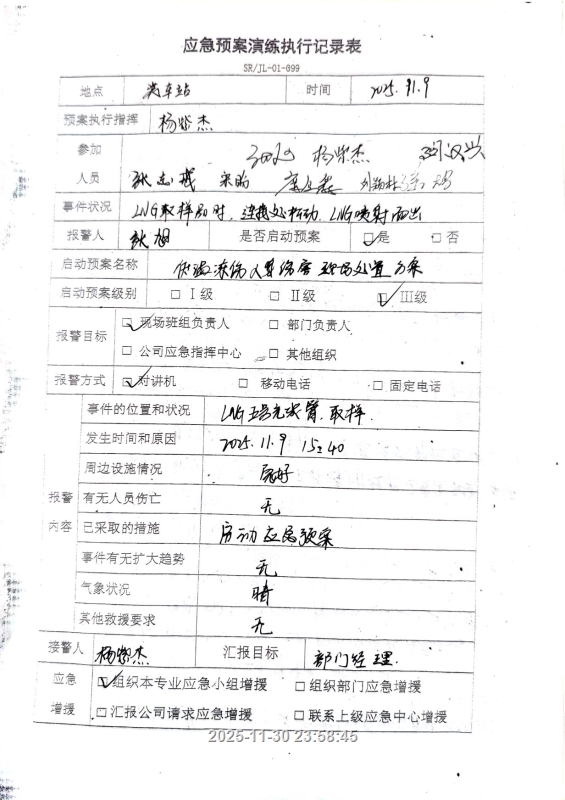 应急预案演练执行记录表
SR/JL-01-099
地点 装车站 时间 2025.11.9
预案执行指挥 杨崇杰
参加 杨崇杰
人员
事件状况 LNG取样时，连接处松动，LNG喷射而出
报警人 是否启动预案 ☑是 □否
启动预案名称 低温冻伤人员伤害现场处置方案
启动预案级别 □Ⅰ级 □Ⅱ级 ☑Ⅲ级
报警目标 ☑现场班组负责人 □部门负责人
□公司应急指挥中心 □其他组织
报警方式 ☑对讲机 □移动电话 □固定电话
事件的位置和状况 LNG 取样
发生时间和原因 2025.11.9 15:40
周边设施情况 良好
报警 有无人员伤亡 无
内容 已采取的措施 启动应急预案
事件有无扩大趋势 无
气象状况 晴
其他救援要求 无
接警人 杨崇杰 汇报目标 部门经理
应急 ☑组织本专业应急小组增援 □组织部门应急增援
增援 □汇报公司请求应急增援 □联系上级应急中心增援
2025-11-30 23:58:45